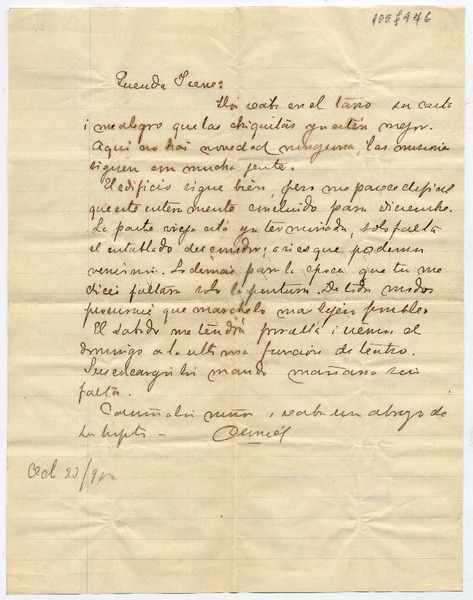 1007946
Querida Irene:
Hoi recibi en el tarro su carta
i me alegro que las chiquitas ya estén mejor.
Aqui no hai novedad ninguna, las misiones
siguen con mucha jente.
El edificio sigue bien, pero me parece dificil
que esté enteramente concluido para diciembre.
La parte vieja está ya terminada, solo falta
el entablado del comedor, asi es que podemos
venirnos. Lo demas para la época que tu me
dices faltara solo la pintura. De todos modos
procuraré que marche lo mas lijero posible.
El sábado me tendrá por allá i iremos el
domingo a la ultima funcion de teatro.
Sus encargos los mando mañana sin
falta.
Cariños a los niños i reciba un abrazo de
su
Oct 23/9